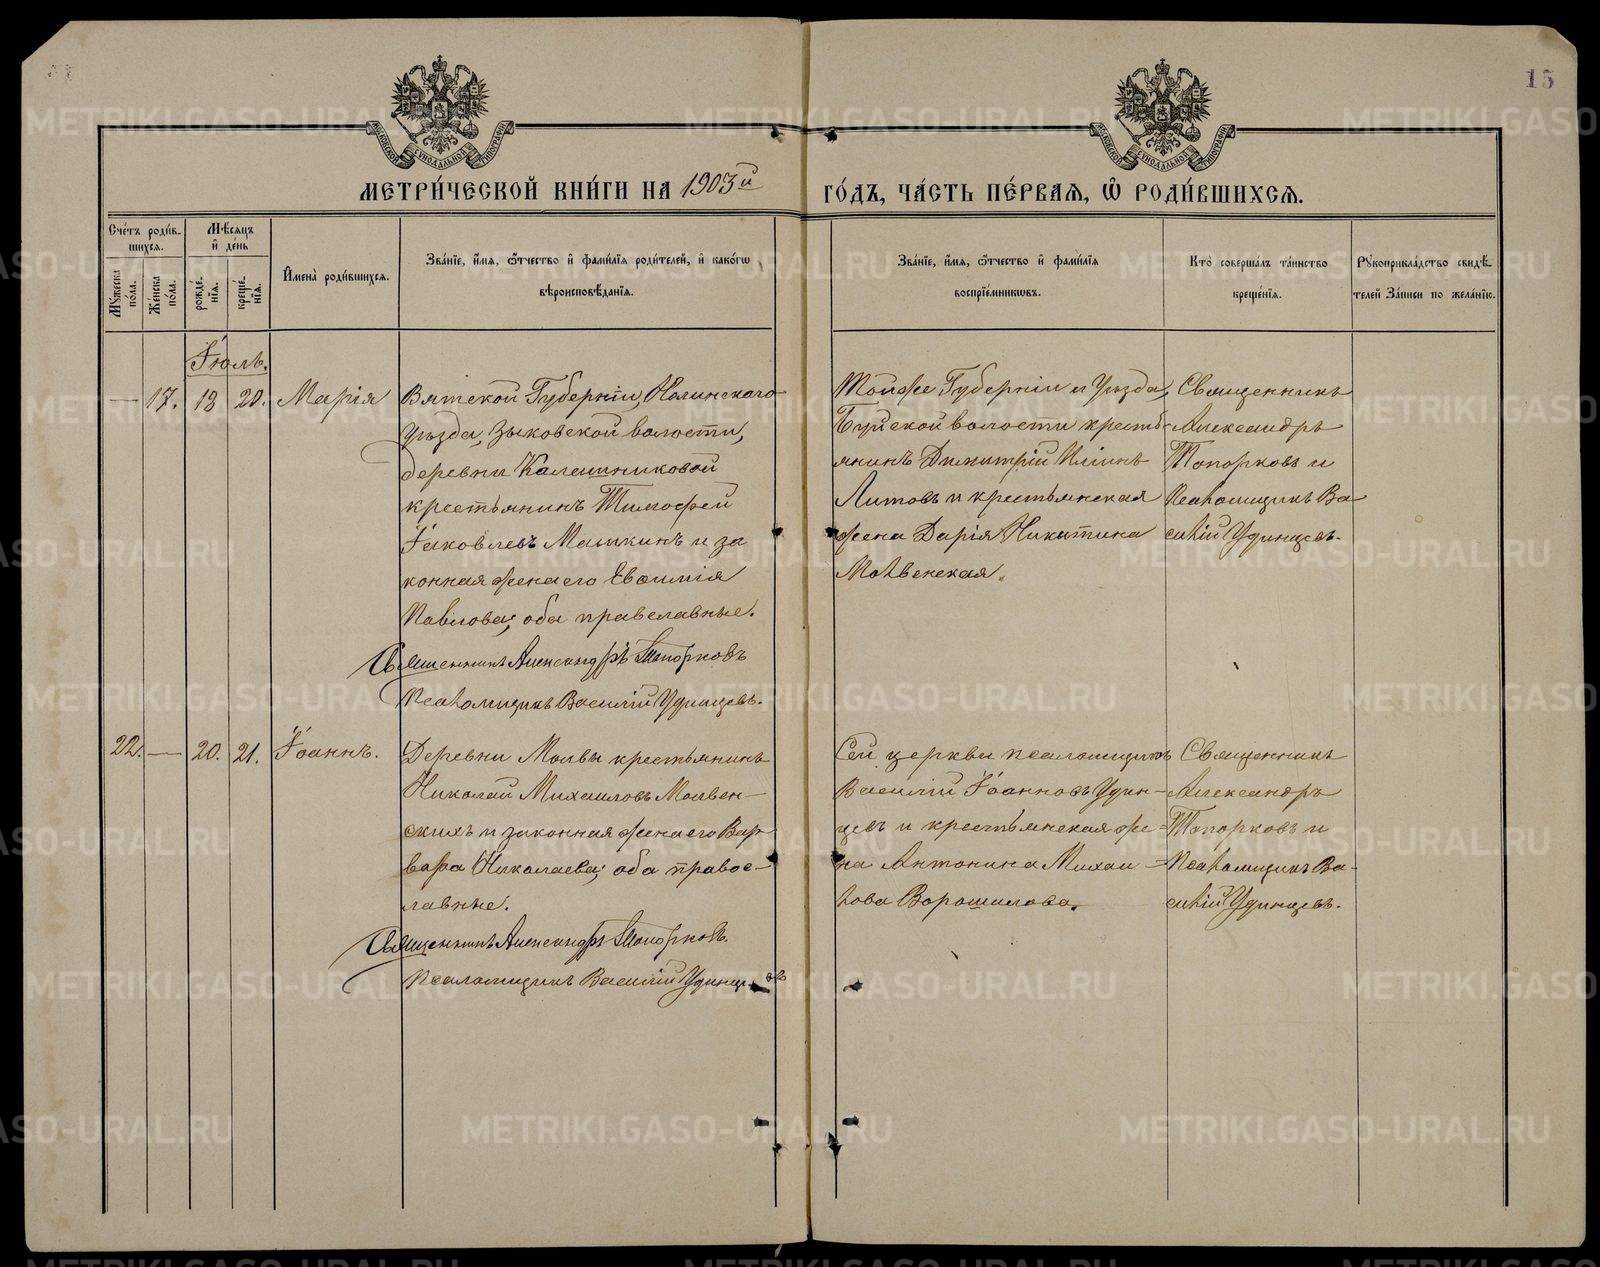 15
МОСКОВСКОЙ СѴНОДАЛЬНОЙ ТИПОГРАФІИ
МОСКОВСКОЙ СѴНОДАЛЬНОЙ ТИПОГРАФІИ
МЕТРИ́ЧЕСКОЙ КНИ́ГИ НА 1903й ГО́ДЪ, ЧА́СТЬ ПЕ́РВАЯ, Ѿ РОДИ́ВШИХСЯ.
Сче́тъ роди́в-
шихся.
Мѣ́сяцъ
и҆ де́нь
Мꙋ́жеска
по́ла.
Же́нска
по́ла.
рожде́-
нїя.
креще́-
нїя.
И҆мена̀ роди́вшихся.
Зва́нїе, и҆́мя, ѻ҆́тчество и҆ фами́лїя роди́телей, и҆ како́гѡ
вѣроисповѣ́данїя.
Зва́нїе, и҆́мя, ѻ҆́тчество и҆ фами́лїя
воспрїе́мникѡвъ.
Кто̀ соверша́лъ та́инство
креще́нїя.
Рꙋкоприкла́дство свидѣ́-
телей За́писи по жела́нїю.
Іюль.
— 17. 13 20. Марія
Вятской Губерніи, Нолинскаго
уѣзда, Зыковской волости,
деревни Калешниковой
крестьянинъ Тимофей
Іаковлевъ Машкинъ и за
конная жена его Евѳимія
Павлова; оба православные.
Священникъ Александръ Топорковъ
Псаломщикъ Василій Удинцевъ.
Тойже Губерніи и Уѣзда,
Буйской волости кресть-
янинъ Димитрій Иліинъ
Литовъ и крестьянская
жена Дарія Никитина
Молвенская.
Священникъ
Александръ
Топорковъ и
Псаломщикъ Ва
силій Удинцевъ.
22. — 20. 21. Іоаннъ.
Деревни Молвы крестьянинъ
Николай Михаиловъ Молвен-
скихъ и законная жена его Вар
вара Николаева; оба правос-
лавные.
Священникъ Александръ Топорковъ.
Псаломщикъ Василій Удинцевъ
Сей церкви псаломщикъ
Василій Іоанновъ Удин-
цевъ и крестьянская же-
на Антонина Михаи-
лова Ворошилова.
Священникъ
Александръ
Топорковъ и
Псаломщикъ Ва-
силій Удинцевъ.
METRIKI.GASO-URAL.RU